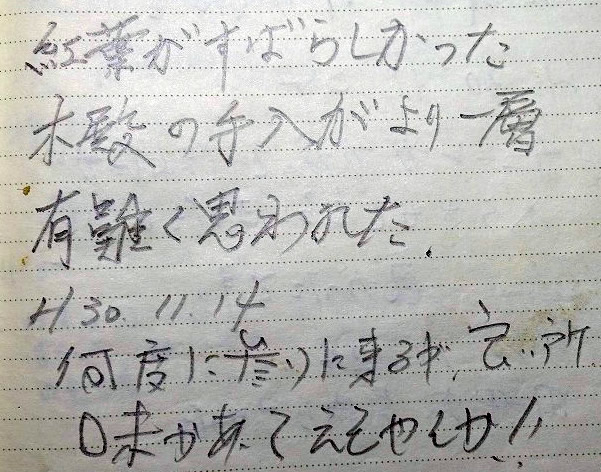 紅葉がすばらしかった
木殿の手入がより一層
有難く思われた.
H30.11.14
何度に参りに来るが、い所
味があってええやんか!!